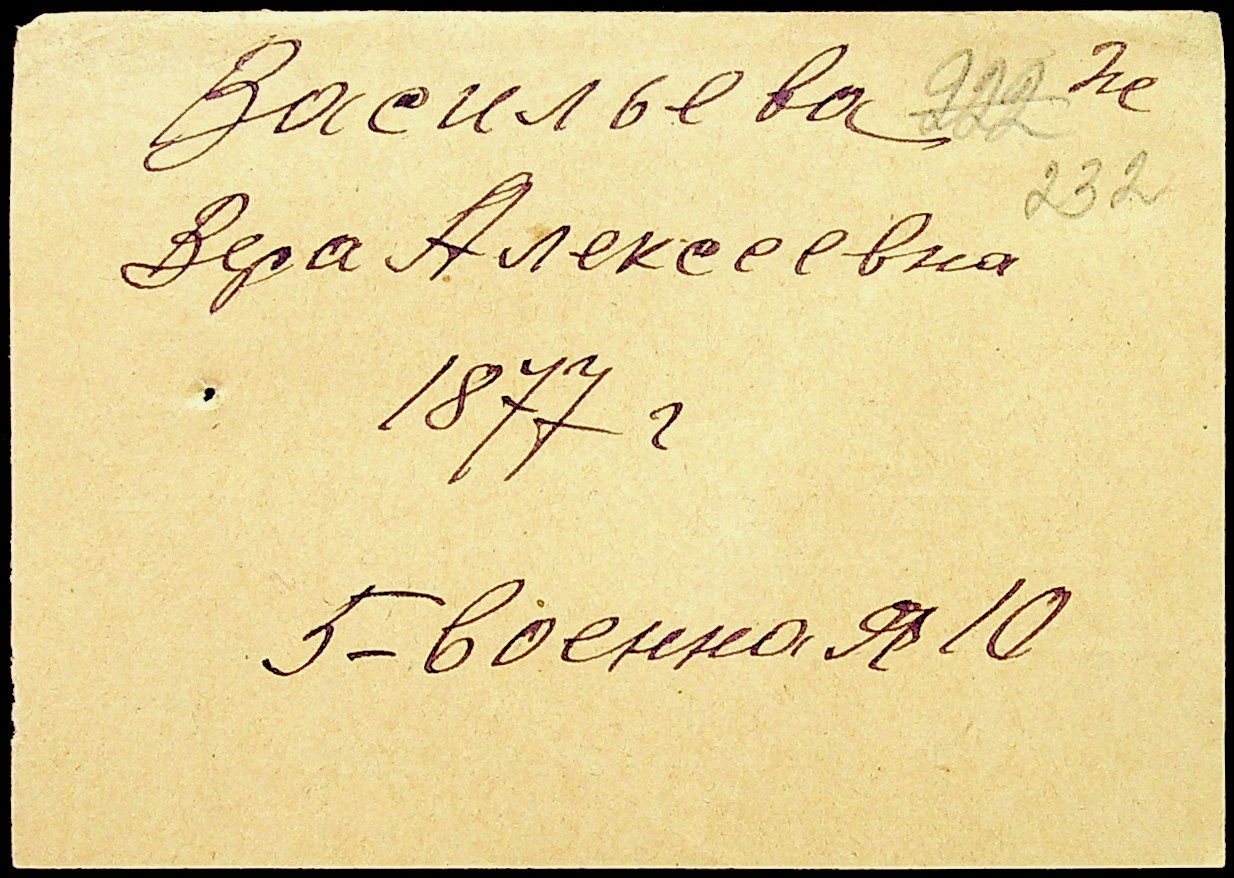 Васильева 222 же
232
Вера Алексеевна
1877 г
5-военная 10